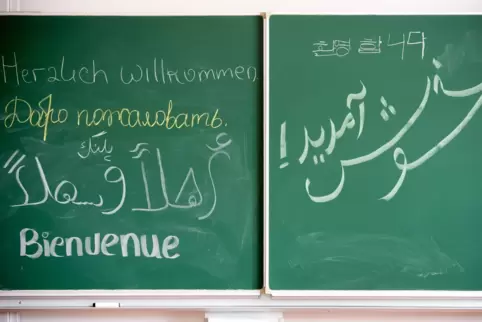 Herzlich willkommen
Добро пожаловать.
أهلاً وسهلاً
Bienvenue
합 니다
خوش آمدید!